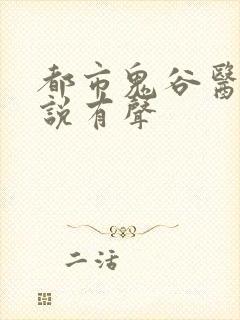 都市鬼谷醫
說有聲
二活